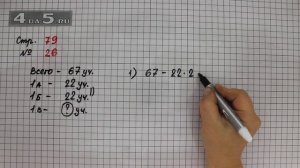 4au5.ru
Стр. 79
№ 26
Всего - 67 уч.
1А - 22 уч.
1Б - 22 уч. ))
1В - ? уч.
1) 67 - 22 · 2